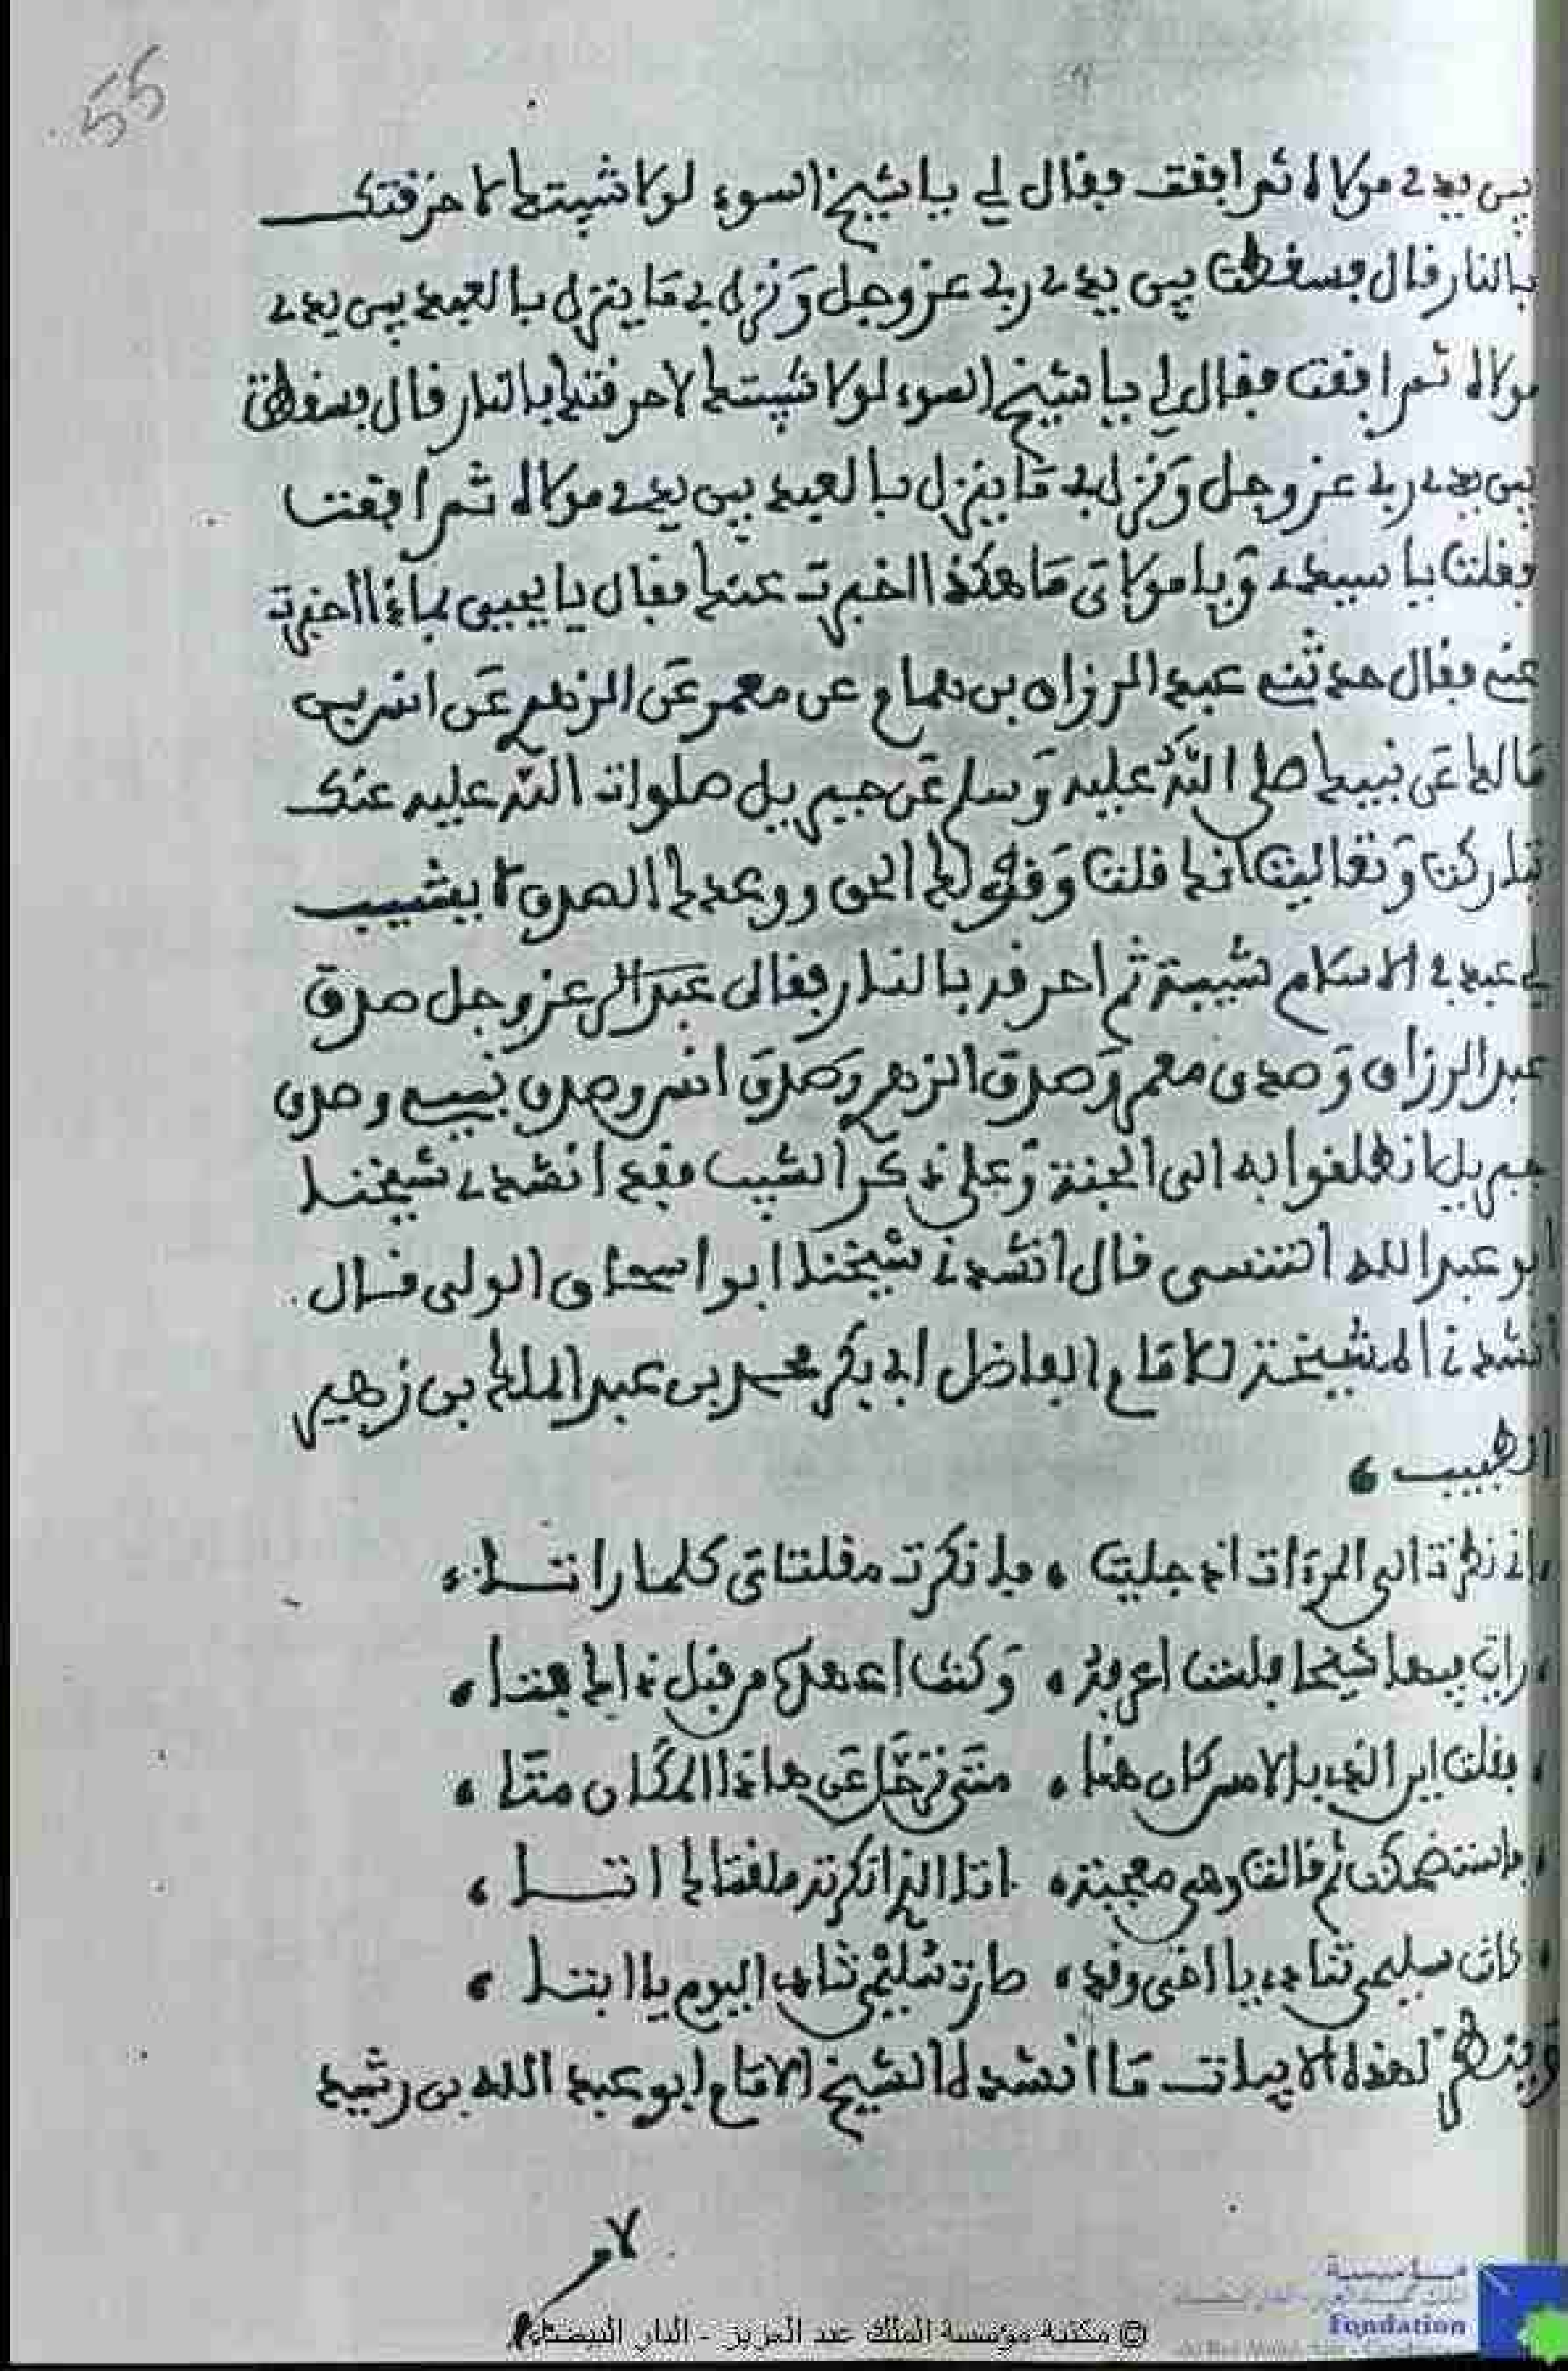 55
بين يدي مولاه ثم افقت فقال لي يا شيخ السوء لولا شيبتك لاحرقتك
بالنار قال فسقطت بين يدي ربي عز وجل وَنزل بي مَا ينزل بالعبد بين يدي
مولاه ثم افقت فقال لي يا شيخ السوء لولا شيبتك لاحرقتك بالنار قال فسقطت
بين يدي ربي عز وجل وَنزل بي مَا ينزل بالعبد بين يدي مولاه ثم افقت
فقلت يا سيدي وَيا مولاي مَا هكذا اخبرت عنك فقال يا يحيى بماذا اخبرت
عني فقال حدثني عبد الرزاق بن همام عن معمر عَن الزهري عَن انس بن
مَالك عَن نبيك صلى اللّٰه عليه وَسلم عَن جبريل صلوات اللّٰه عليه عنك
تباركت وَتعاليت انك قلت وَقولك الحق ووعدك الصدق لا يشيب
لي عبد في الاسلام شيبة ثم احرقه بالنار فقال عز وجل صدق
عبد الرزاق وَصدق معمر وَصدق الزهري وَصدق انس وصدق نبيي وصدق
جبريل انطلقوا به الى الجنة وَعلى ذكر الشيب فقد انشدني شيخنا
ابو عبد الله التنسي قال انشدني شيخنا ابو اسحاق الولي قال
انشدني المشيخة للامام الفاضل ابي بكر محمد بن عبد الملك بن زهير
الطبيب
اني نظرت الى المرءات اذ جليت ، فانكرت مقلتاي كلما راتا ،
رايت فيها شيخا فلست اعرفه ، وَكنت اعهده من قبل ذاك فتا ،
فقلت اين الذي بالامس كان هنا ، متى ترحّل عَن هاذا المكان متا ،
فاستضحكت ثم قالت وهي معجبة ، انّ الذي انكرته مقلتاك اتا ،
كانت سليمى تنادي يا اخي وقد ، صارت سُليمى تنادي اليوم يا ابتا ،
وينظر لهذه الابيات مَا انشده الشيخ الامام ابو عبد الله بن رشيد
© مكتبة مؤسسة الملك عبد العزيز - الدار البيضاء
مؤسسة
Fondation